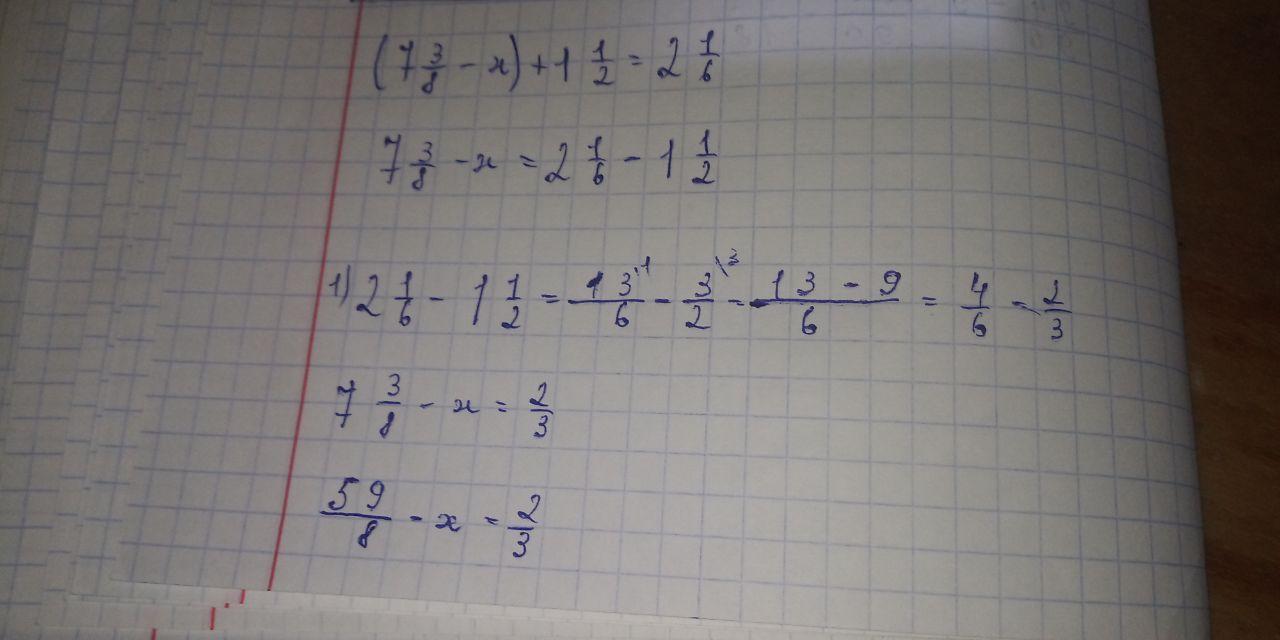 (7 3/8 - x) + 1 1/2 = 2 1/6
7 3/8 - x = 2 1/6 - 1 1/2
1) 2 1/6 - 1 1/2 = 13/6 \1 - 3/2 \3 = 13 - 9/6 = 4/6 = 2/3
7 3/8 - x = 2/3
59/8 - x = 2/3